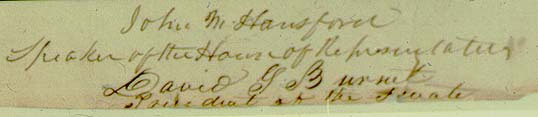 John M Hansford
Speaker of the House of Representatives
David G Burnet
President of the Senate